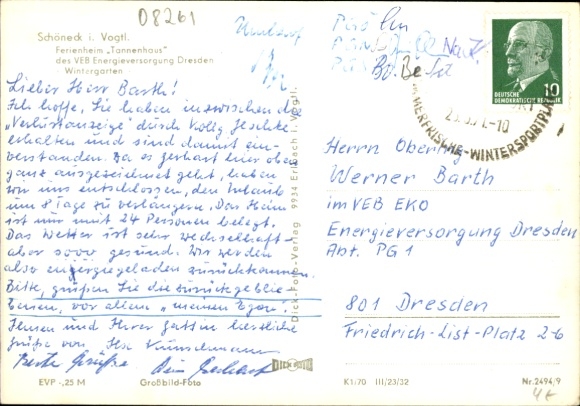 08261
Schöneck i. Vogtl.
Ferienheim „Tannenhaus"
des VEB Energieversorgung Dresden
- Wintergarten -
Umlauf
Lieber Herr Barth!
Ich hoffe, Sie haben inzwischen die
„Verlustanzeige" durch Kolln. Jeschke
erhalten und sind damit ein-
verstanden. Da es hier oben
ganz ausgezeichnet geht, haben
wir uns entschlossen, den Urlaub
um 8 Tage zu verlängern. Das Heim
ist nur mit 24 Personen belegt.
Das Wetter ist sehr wechselhaft -
aber sooo gesund. Wir werden
also energiegeladen zurückkommen.
Bitte, grüßen Sie die zurückgeblie-
benen, vor allem „meinen Egon".
Ihnen und Ihrer Gattin herzliche
Grüße von Ilse Kunschmann
Beste Grüße
EVP -,25 M
Großbild-Foto
Dick-Foto-Verlag 9934 Erlbach i. Vogtl.
DICK FOTO
DEUTSCHE
DEMOKRATISCHE REPUBLIK
10
MERFRISCHE-WINTERSPORTPL
-10
Herrn Obering.
Werner Barth
im VEB EKO
Energieversorgung Dresden
Abt. PG 1
801 Dresden
Friedrich-List-Platz 2-6
K1/70 III/23/32
Nr. 2494/9